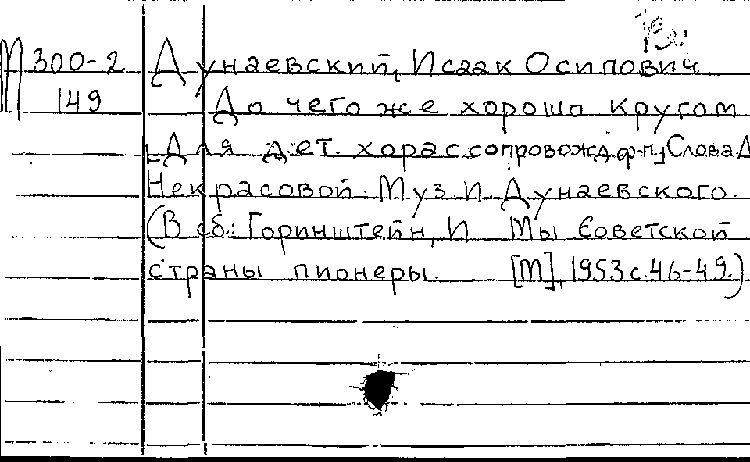 М 300-2
149
Дунаевский, Исаак Осипович
До чего же хорошо кругом
[Для дет. хора с сопровожд. ф-п.] Слова Д
Некрасовой. Муз И. Дунаевского.
(В сб.: Горинштейн, И Мы Советской
страны пионеры. [М], 1953 с. 46-49.)